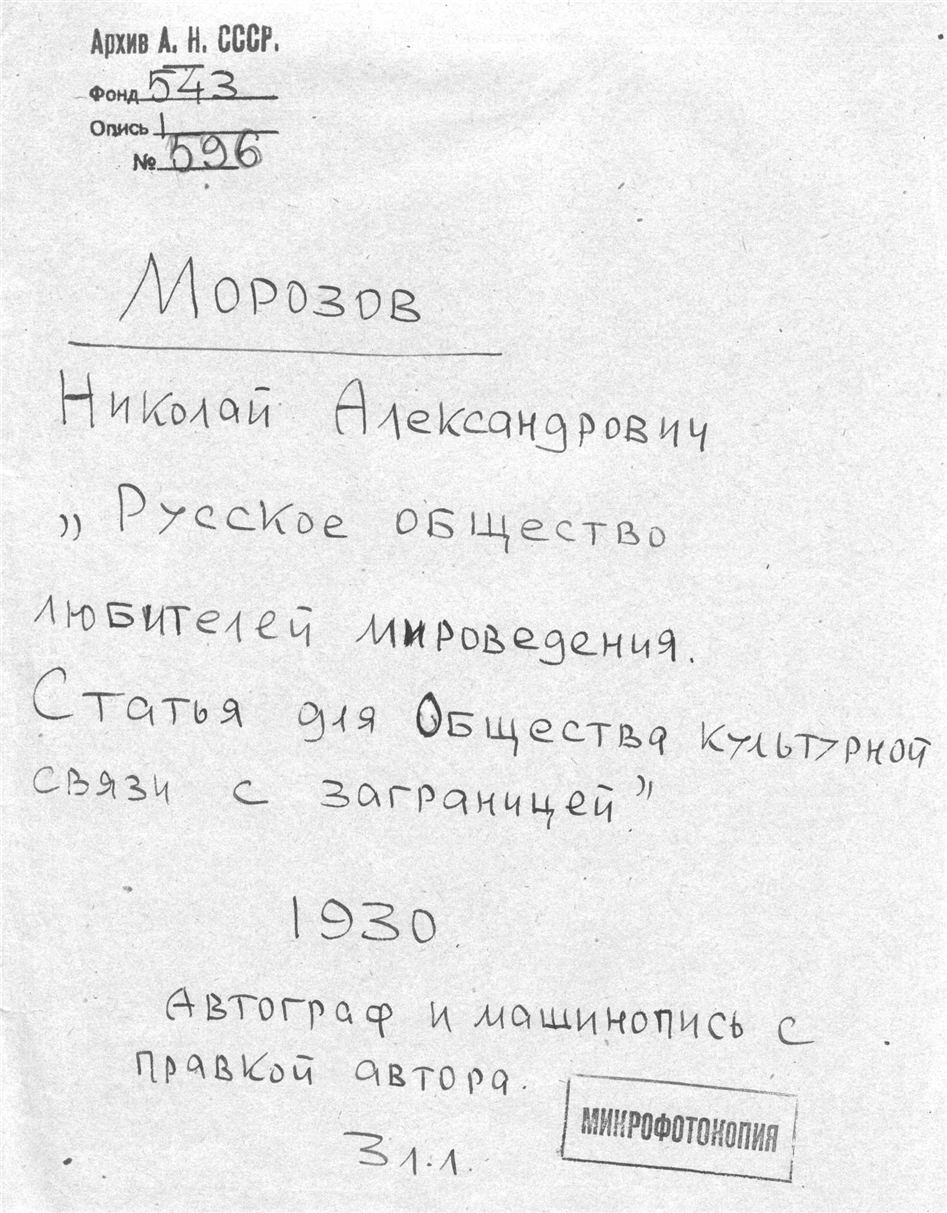 Архив А. Н. СССР.
Фонд 543
Опись 1
№ 596
Морозов
Николай Александрович
„Русское общество
любителей мироведения.
Статья для Общества культурной
связи с заграницей”
1930
Автограф и машинопись с
правкой автора.
МИКРОФОТОКОПИЯ
3 л.л.